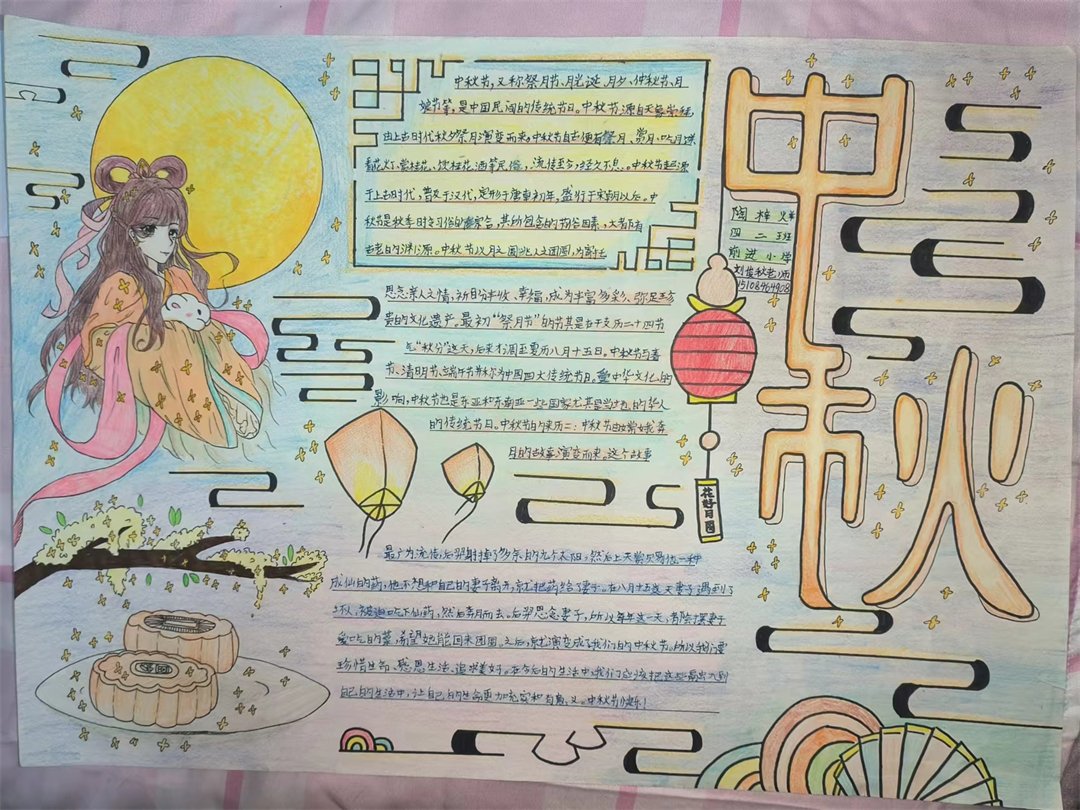 中秋节,又称祭月节、月光诞、月夕、仲秋节、月
娘节等,是中国民间的传统节日。中秋节源自天象崇拜,
由上古时代秋夕祭月演变而来。中秋节自古便有祭月、赏月、吃月饼
看花灯、赏桂花、饮桂花酒等民俗,流传至今,经久不息。中秋节起源
于上古时代,普及于汉代,定形于唐朝初年,盛行于宋朝以后。中
秋节是秋季时令习俗的综合,其所包含的节俗因素,大都有
古老的渊源。中秋节以月之圆兆人之团圆,为寄托
思念亲人之情,祈盼丰收、幸福,成为丰富多彩、弥足珍
贵的文化遗产。最初“祭月节”的节其是在干支历二十四节
气“秋分”这天,后来才调至夏历八月十五日。中秋节与春
节、清明节、端午节并称为中国四大传统节日。受中华文化的
影响,中秋节也是东亚和东南亚一些国家尤其是当地的华人
的传统节日。中秋节的来历二:中秋节由嫦娥奔
月的故事演变而来。这个故事
最广为流传,后羿射掉了多余的九个太阳,然后上天赏赐他一种
成仙的药,他不想和自己的妻子离开,就把药给了妻子。在八月十五这天妻子遇到了
坏人,被迫吃下仙药,然后奔月而去。后羿思念妻子,所以每年这一天,都险摆妻子
爱吃的菜,希望她能回来团圆。之后,就演变成了我们的中秋节。所以我们要
珍惜生命、感恩生活、追求美好。在今后的生活中我们应该把这些
自己的生活中,让自己的生命更加充实和有意义。中秋节快乐!
中秋
陶梓
四二班
前进小学
刘俊秋老师
15108464928
花好月圆